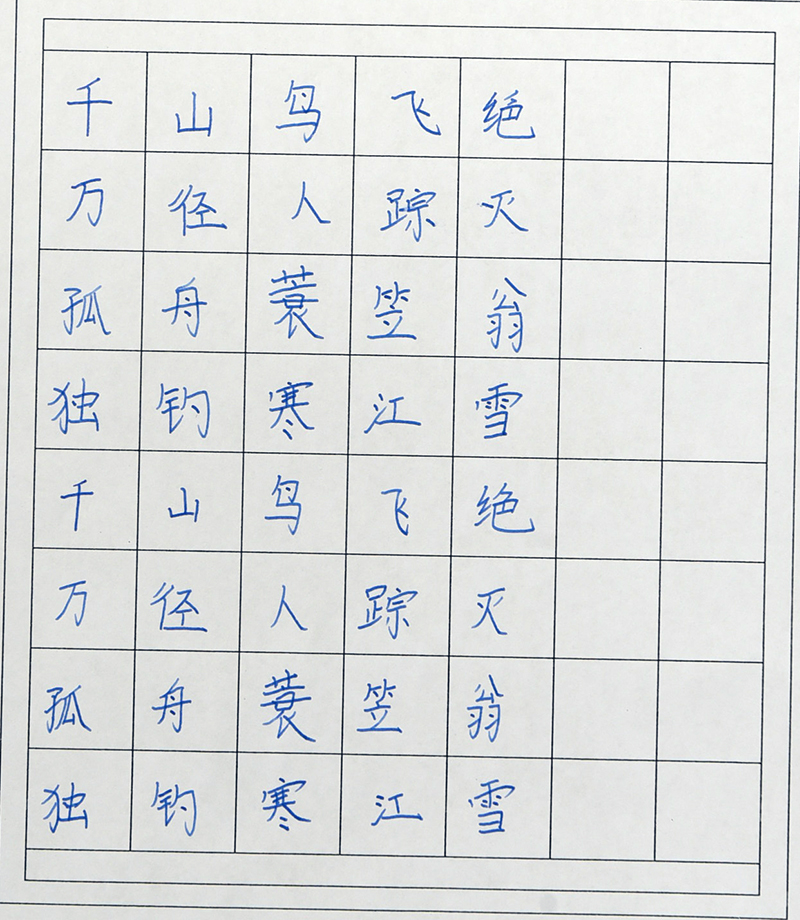 千山鸟飞绝
万径人踪灭
孤舟蓑笠翁
独钓寒江雪
千山鸟飞绝
万径人踪灭
孤舟蓑笠翁
独钓寒江雪